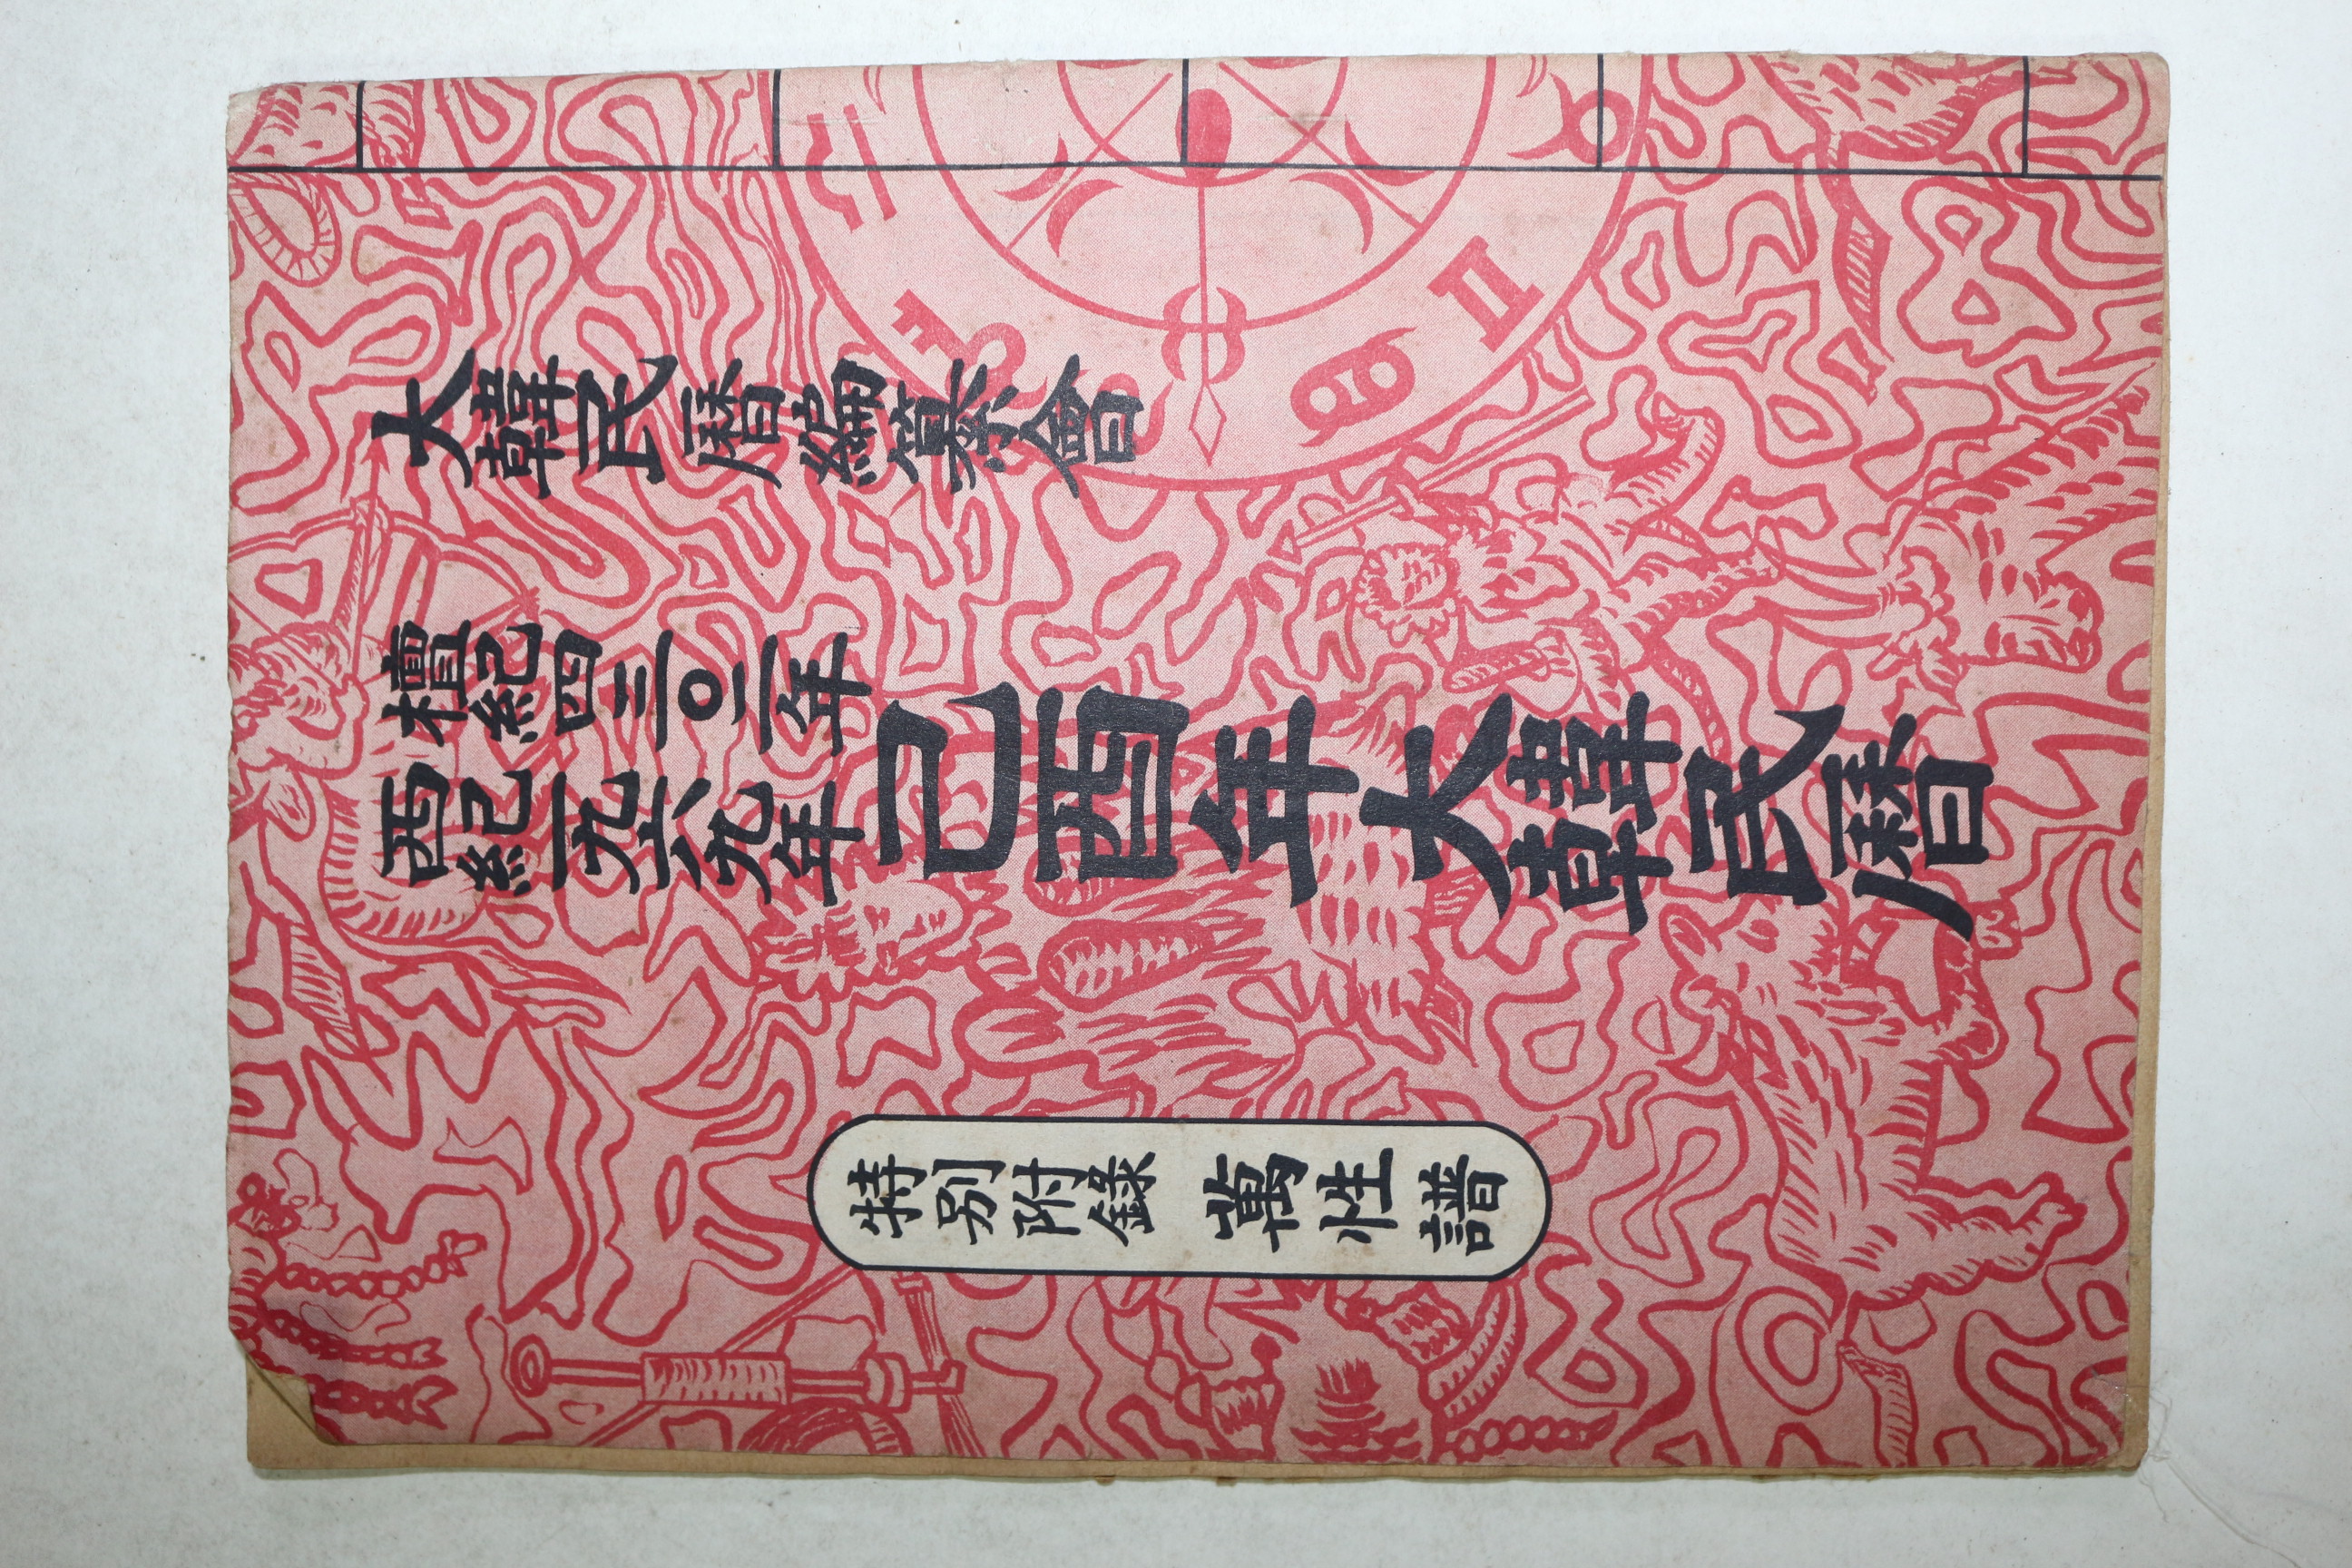 大韓民曆編纂會
檀紀四三〇二年
西紀一九六九年
己酉年大韓民曆
特別附錄 萬性譜